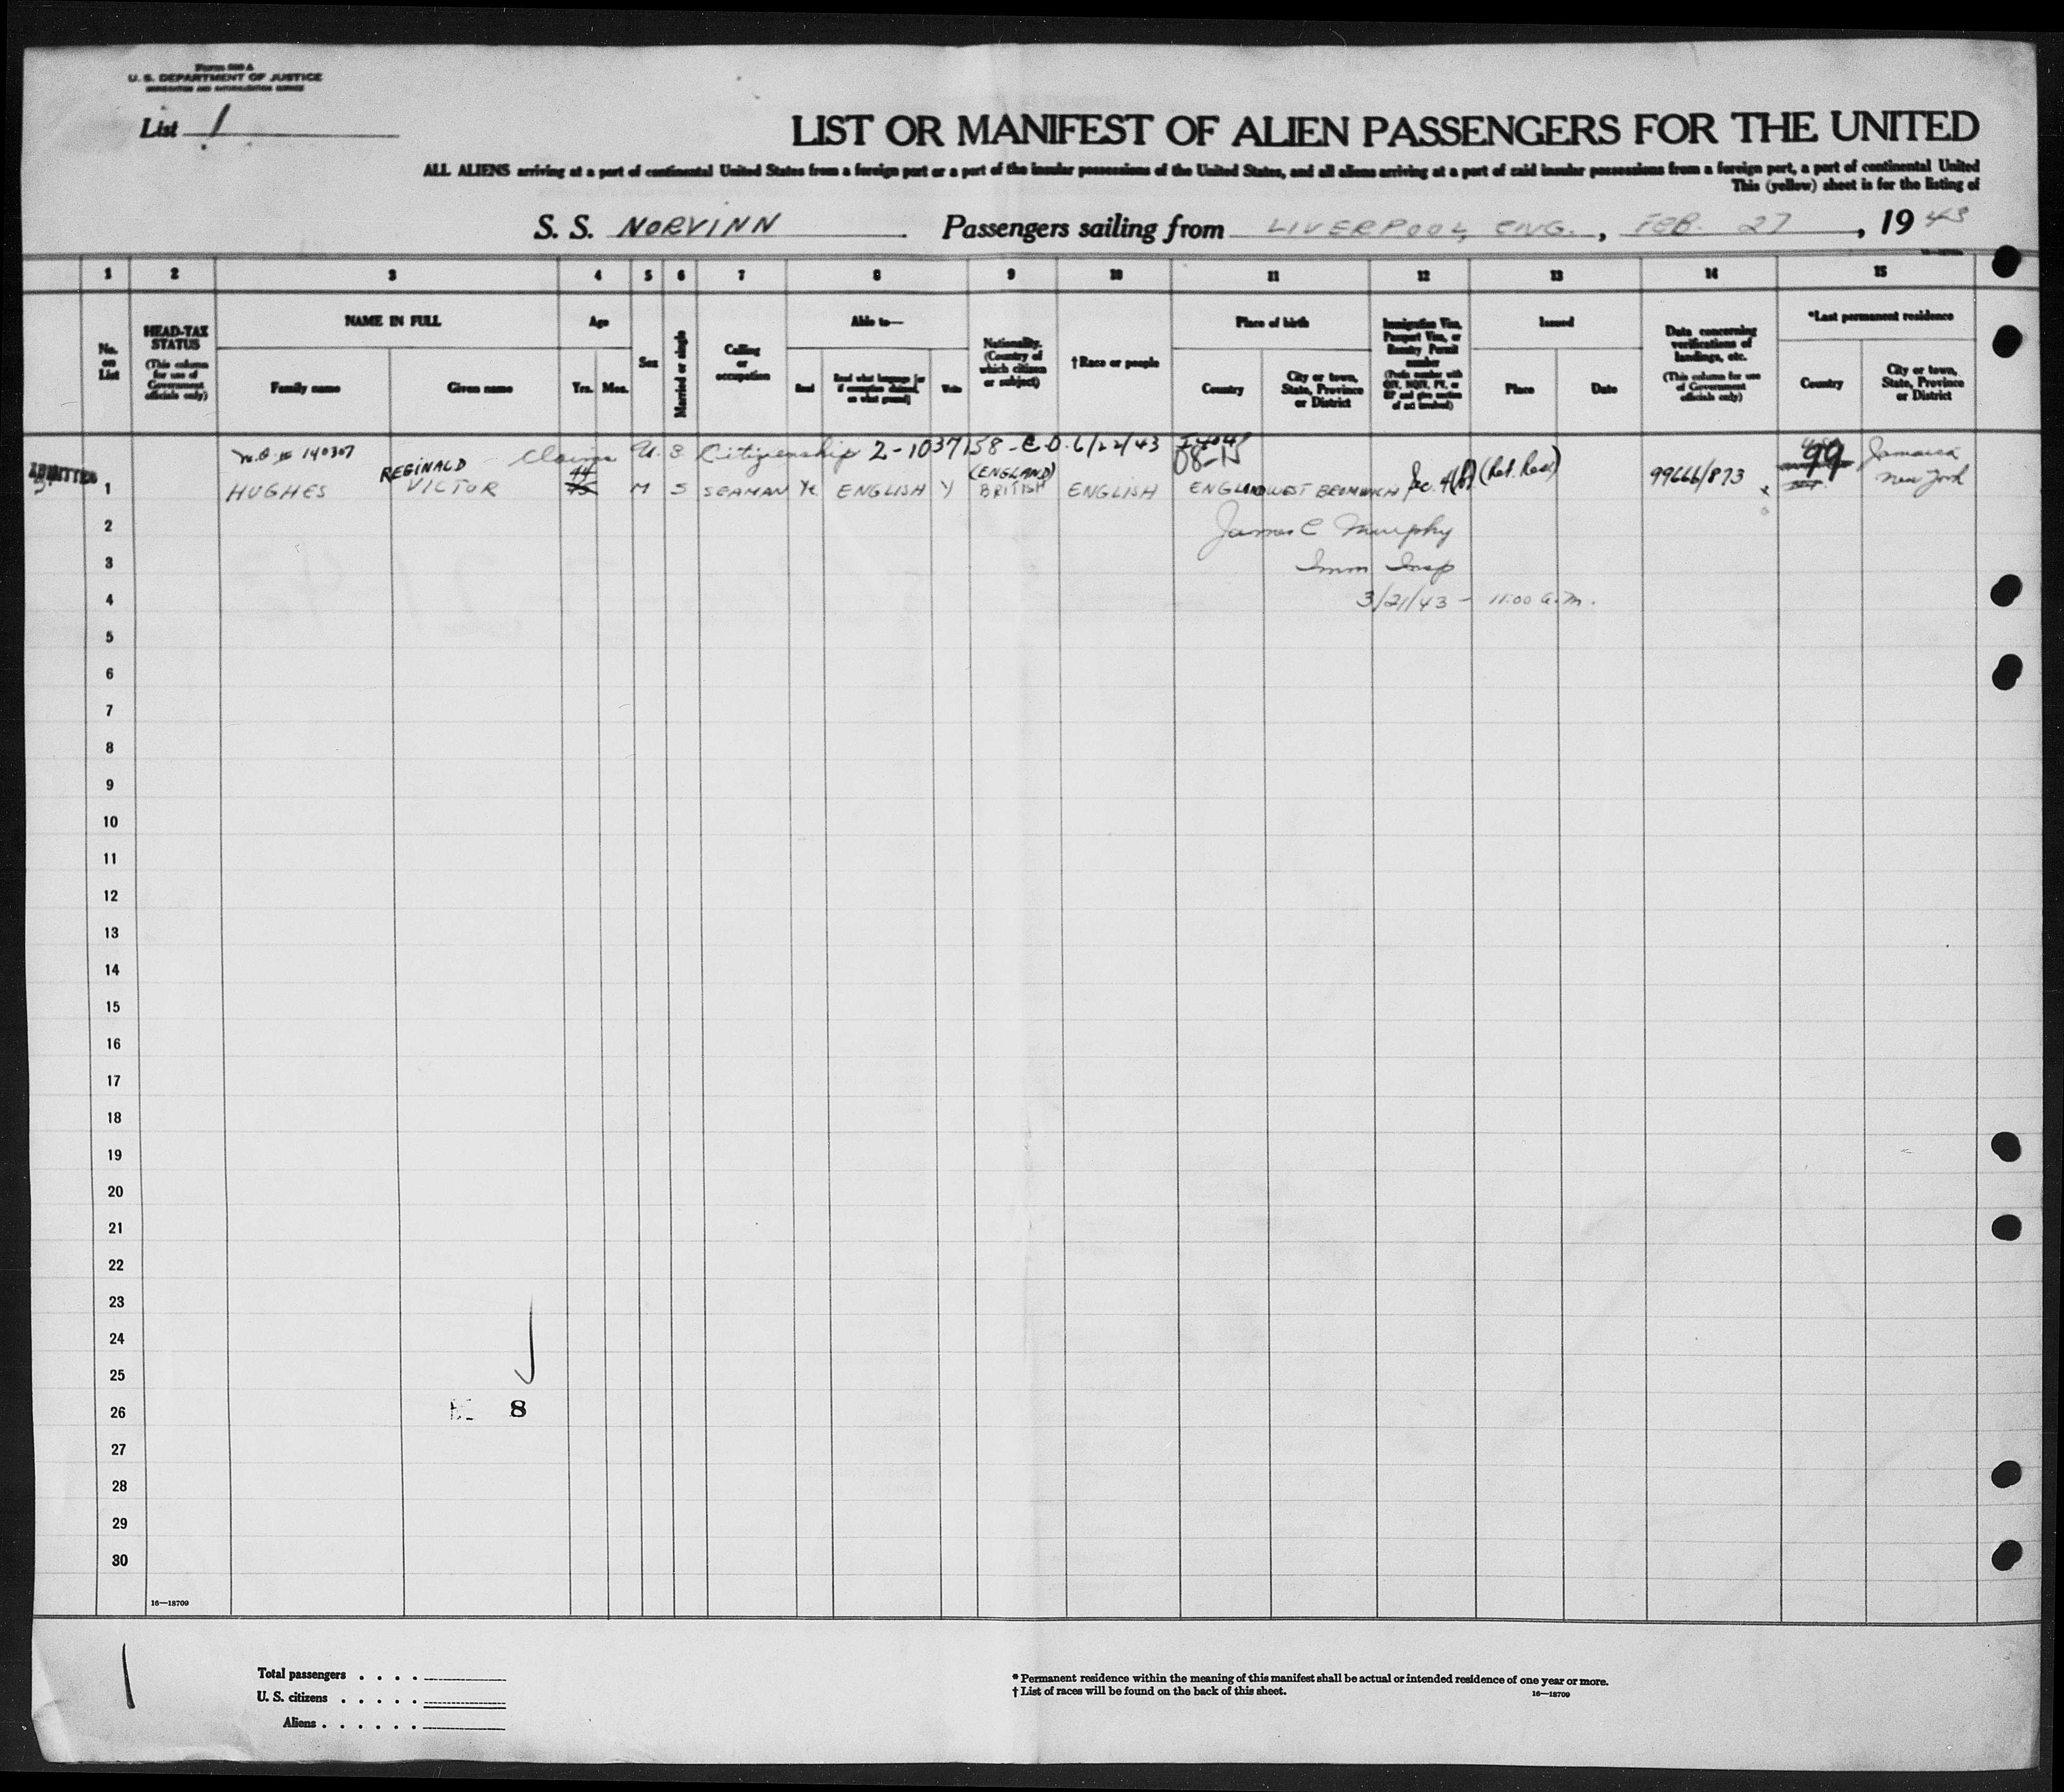 Form 500 A
U. S. DEPARTMENT OF JUSTICE
IMMIGRATION AND NATURALIZATION SERVICE
List 1
LIST OR MANIFEST OF ALIEN PASSENGERS FOR THE UNITED
ALL ALIENS arriving at a port of continental United States from a foreign port or a port of the insular possessions of the United States, and all aliens arriving at a port of said insular possessions from a foreign port, a port of continental United
This (yellow) sheet is for the listing of
S. S. NORVINN Passengers sailing from LIVERPOOL, ENG. , FEB. 27 , 1943
1 2 3 4 5 6 7 8 9 10 11 12 13 14 15
No. on List
HEAD-TAX STATUS
(This column for use of Government officials only)
NAME IN FULL
Family name
Given name
Age
Yrs.
Mos.
Sex
Married or single
Calling or occupation
Able to—
Read
Read what language [or if exemption claimed, on what ground]
Write
Nationality. (Country of which citizen or subject)
† Race or people
Place of birth
Country
City or town, State, Province or District
Immigration Visa, Passport Visa, or Reentry Permit number
(Prefix number with QIV, NQIV, PV, or RP and give section of act involved)
Issued
Place
Date
Data concerning verifications of landings, etc.
(This column for use of Government officials only)
*Last permanent residence
Country
City or town, State, Province or District
140307 Claims U. S. Citizenship 2-1037158-C.O. 6/22/43
08-15
99
Jamaica
ADMITTED
REGINALD
44
(ENGLAND)
1 HUGHES VICTOR M S SEAMAN Ye ENGLISH Y BRITISH ENGLISH ENGLAND WEST BROMWICH Sec. 4(b) (Ret. Res) 99666/873 New York
2 James C Murphy
3 Imm Insp
4 3/21/43 - 11:00 a.m.
5
6
7
8
9
10
11
12
13
14
15
16
17
18
19
20
21
22
23
24
25
26 8
27
28
29
30
16—18709
1
Total passengers . . . .
U. S. citizens . . . . .
Aliens . . . . . .
* Permanent residence within the meaning of this manifest shall be actual or intended residence of one year or more.
† List of races will be found on the back of this sheet.
16—18709